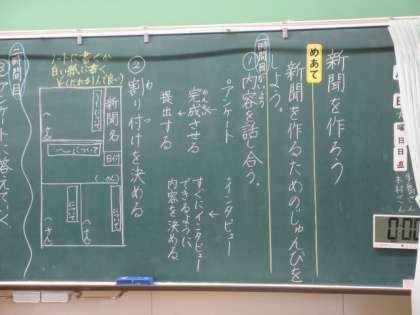 新聞を作ろう
めあて
新聞を作るためのじゅんびを
しよう。
一時間目
①内容を話し合う。
・アンケート
かんせい
完成させる
提出する
・インタビュー
すぐにインタビュー
できるように
内容を決める
②割り付けを決める
ノートに書く
白い紙に書く
新聞名
日付
〜について
二時間目
②アンケートに答えていく
月
日
曜日
日直